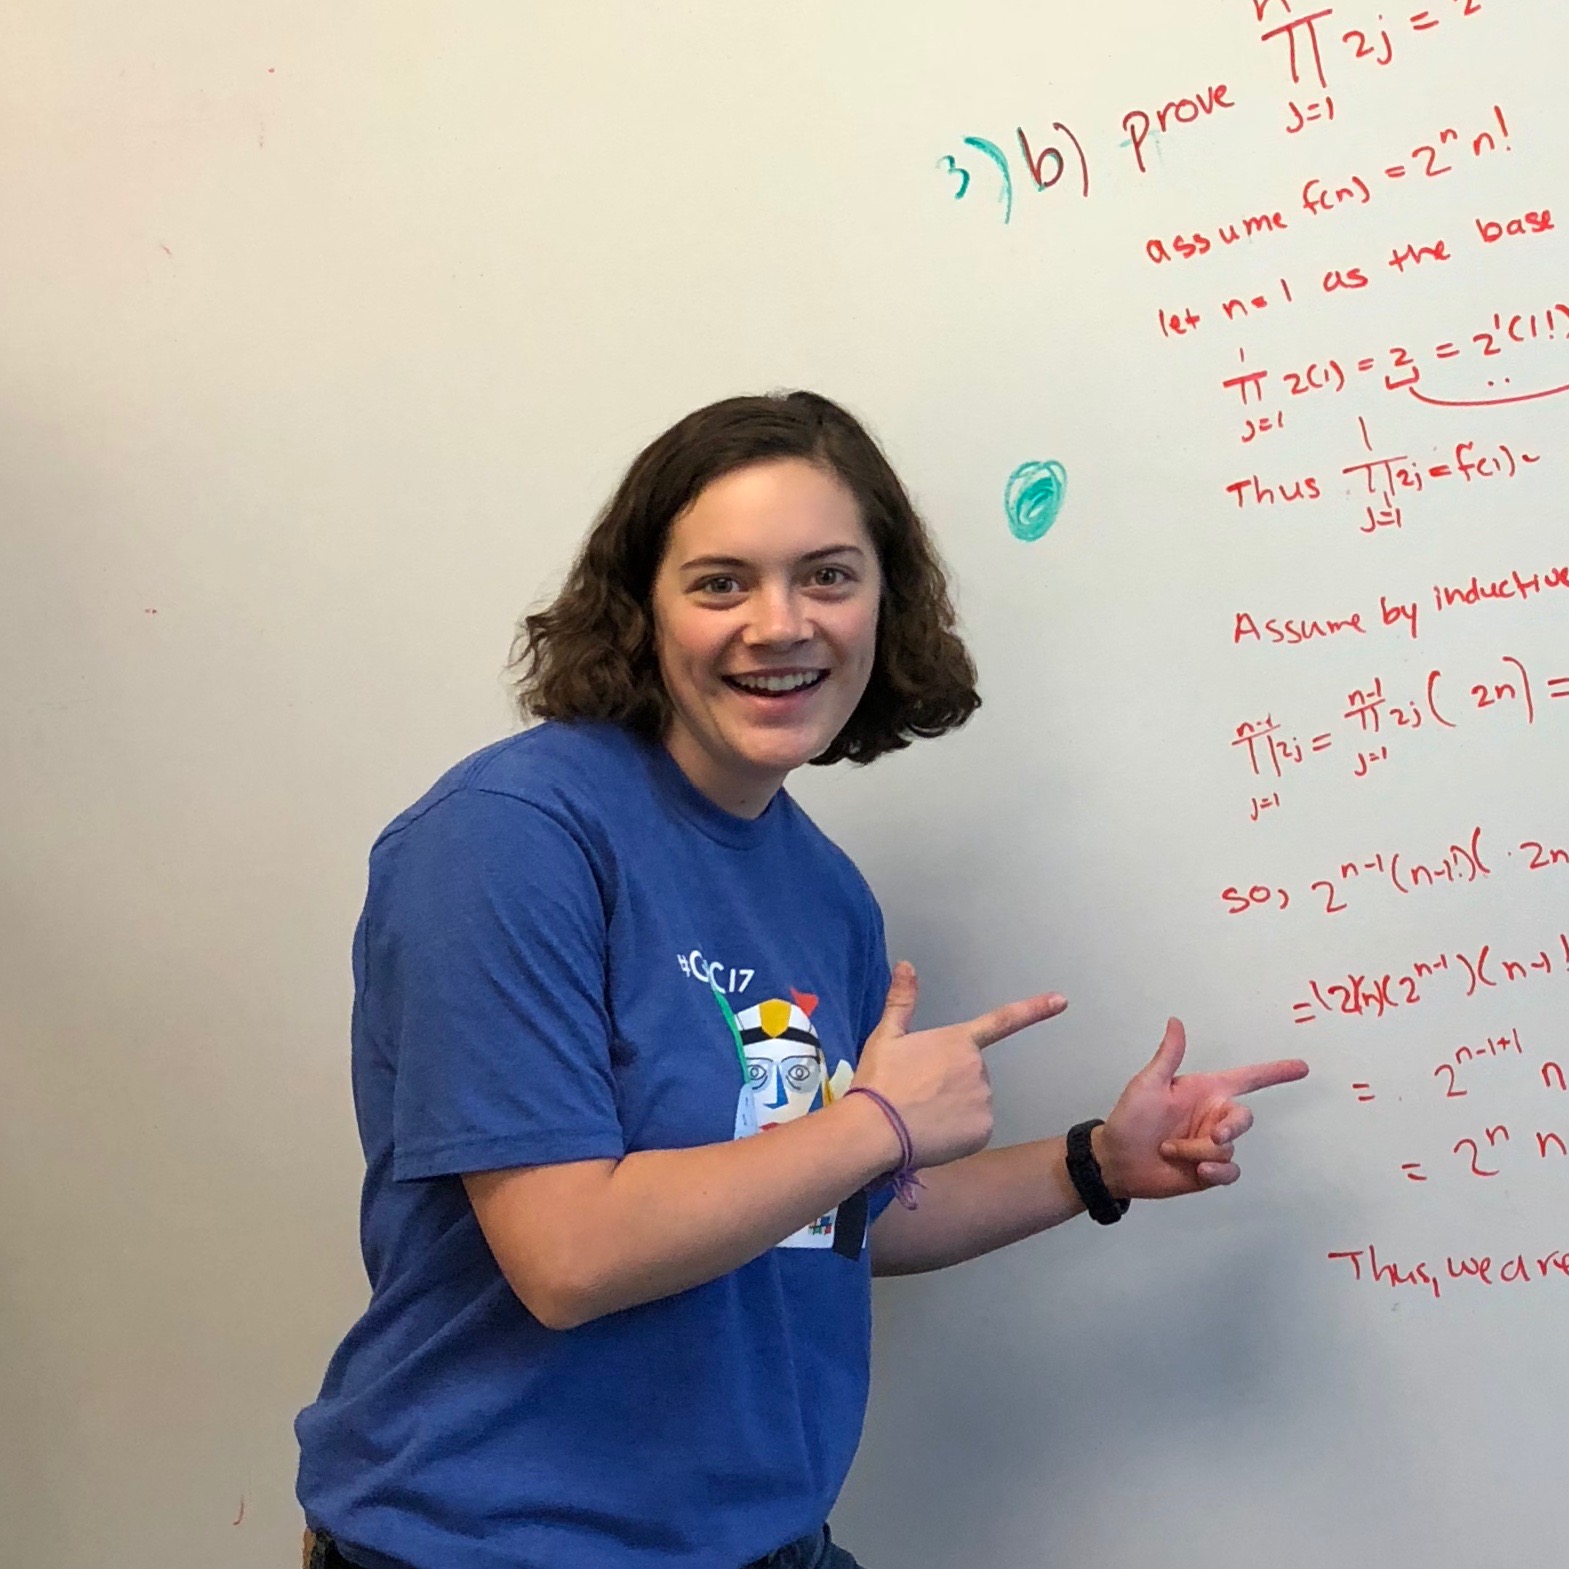 3) b) prove n ∏ j=1 2j = 2
assume f(n) = 2^n n!
let n=1 as the base
1 ∏ j=1 2(1) = 2 = 2^1(1!)
Thus 1 ∏ j=1 2j = f(1)
Assume by inductive
n-1 ∏ j=1 2j = n-1 ∏ j=1 2j ( 2n) =
so, 2^n-1 (n-1!)( · 2n
= (2)(n)(2^n-1)(n-1!
= 2^n-1+1 n
= 2^n n
Thus, we are
#G C17